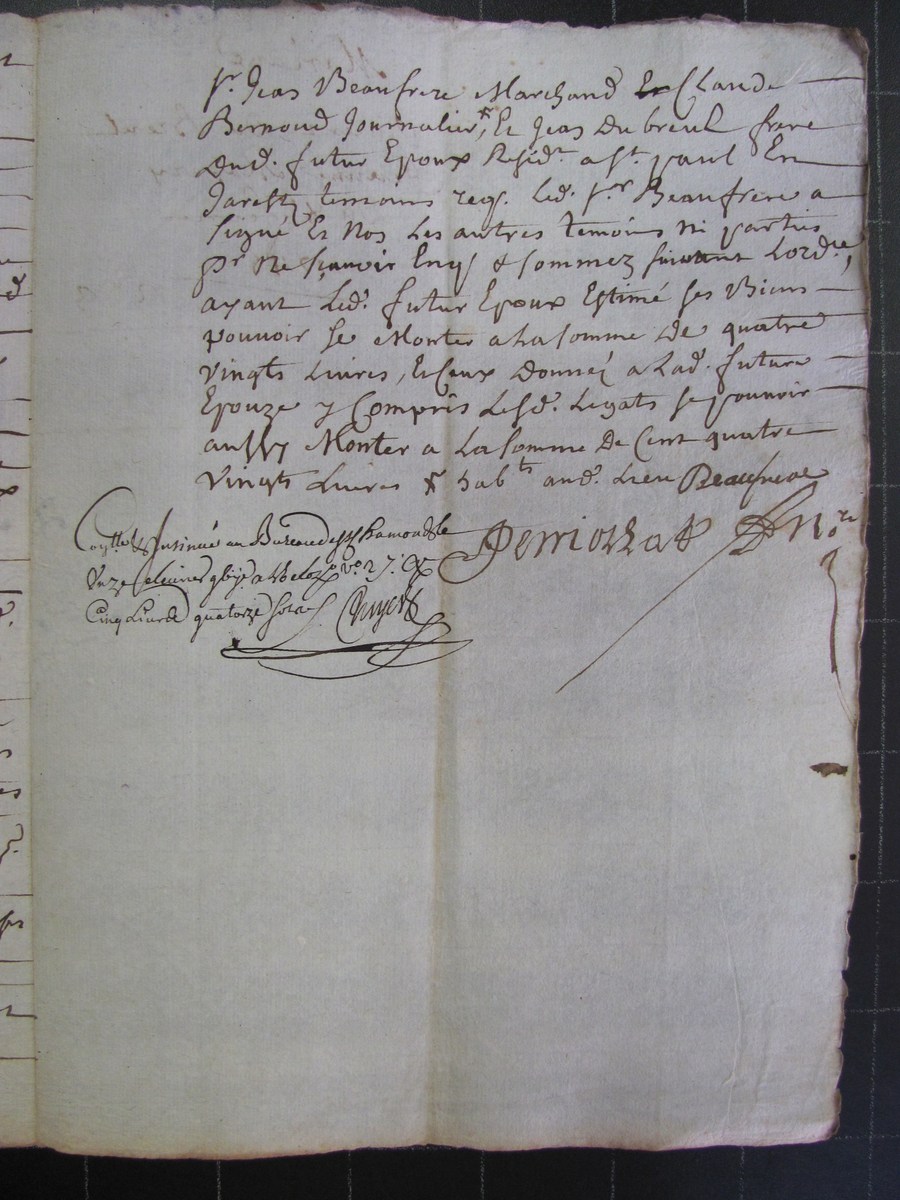 Sr. Jean Beaufrere Marchand Claude
Bernoud Journalier, Et Jean Dubreul frere
Dud. futur Epoux Resid.t a St. paul En
Jarestz temoins req. Led. Sr. Beaufrere a
signé Et Non Les autres temoins ni parties
pr. Ne sçavoir Enq. & sommez suivant Lord.ce,
ayant Led. futur Epoux Estimé ses Biens
pouvoir se Monter a La somme de quatre
vingts Livres, Et Ceux donnés a Lad. future
Epouze y Compris Lesd. Legats se pouvoir
aussy Monter a La somme de Cent quatre
vingts Livres x hab.ts aud. Lieu Beaufrere
No.re
& Insinué au Bureau de St Chamond Le
vo. 27.
Cinq Livres quatorze sols